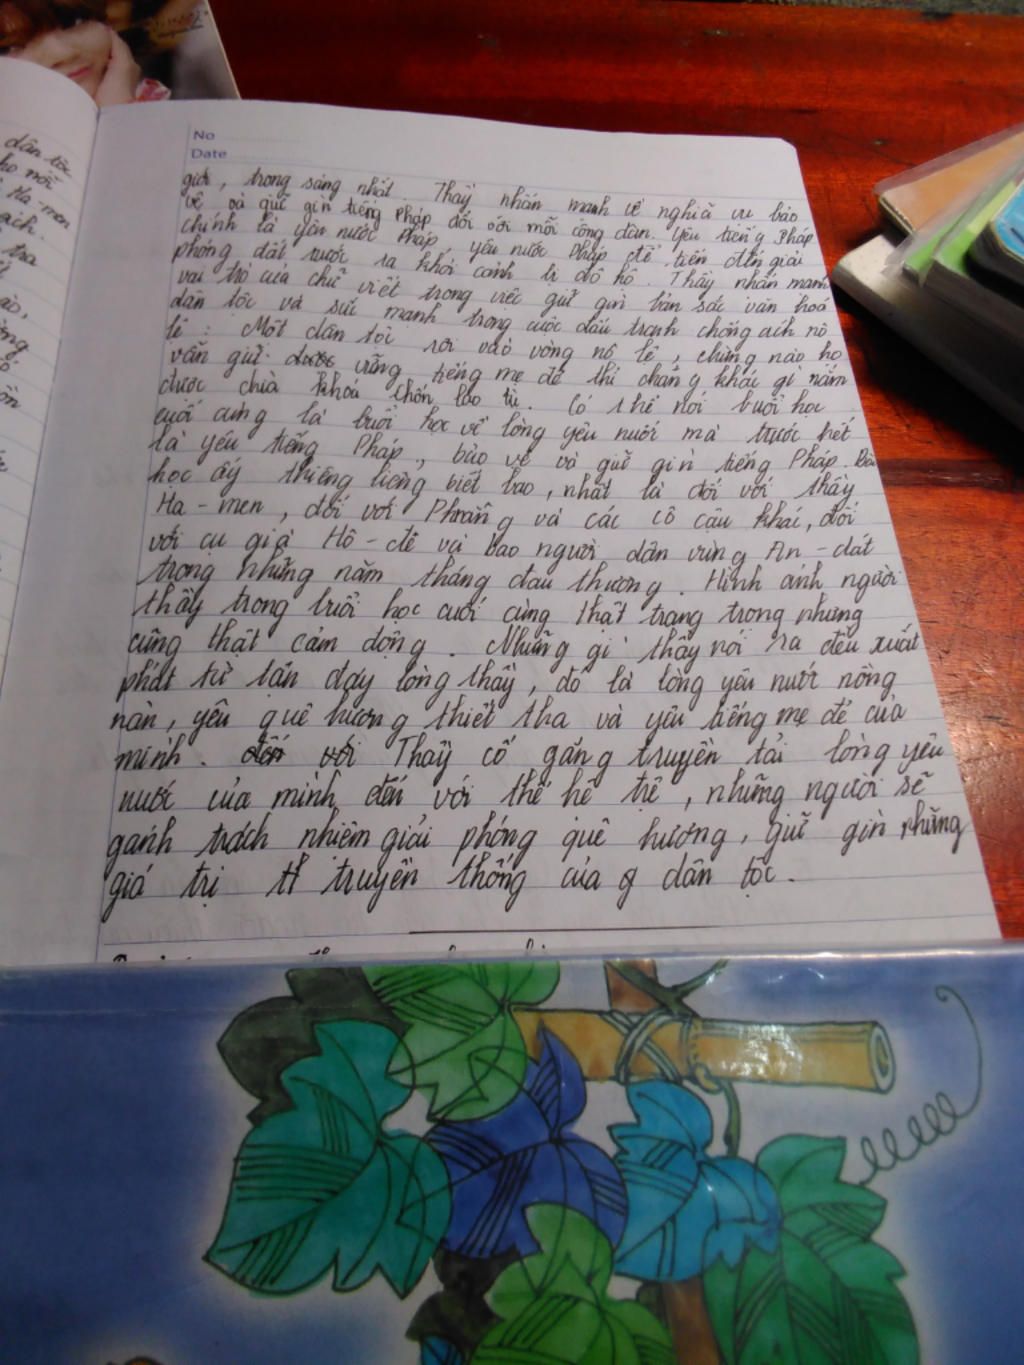 No
Date
giới, trong sáng nhất. Thầy nhấn mạnh về nghĩa vụ bảo
vệ và giữ gìn tiếng Pháp đối với mỗi công dân. Yêu tiếng Pháp
chính là yêu nước Pháp, yêu nước Pháp để tiến đến giải
phóng đất nước ra khỏi cảnh bị đô hộ. Thầy nhấn mạnh
vai trò của chữ viết trong việc giữ gìn bản sắc văn hoá
dân tộc và sức mạnh trong cuộc đấu tranh chống ách nô
lệ: Một dân tộc rơi vào vòng nô lệ, chừng nào họ
vẫn giữ được vững tiếng mẹ đẻ thì chẳng khác gì nắm
được chìa khoá chốn lao tù. Có thể nói buổi học
cuối cùng là buổi học về lòng yêu nước mà trước hết
là yêu tiếng Pháp, bảo vệ và giữ gìn tiếng Pháp. Bài
học ấy thiêng liêng biết bao, nhất là đối với thầy
Ha-men, đối với Phrăng và các cô cậu khác, đối
với cụ già Hô-đê và bao người dân vùng An-dát
trong những năm tháng đau thương. Hình ảnh người
thầy trong buổi học cuối cùng thật trang trọng nhưng
cũng thật cảm động. Những gì thầy nói ra đều xuất
phát từ tận đáy lòng thầy, đó là lòng yêu nước nồng
nàn, yêu quê hương thiết tha và yêu tiếng mẹ đẻ của
mình. đến với Thầy cố gắng truyền tải lòng yêu
nước của mình đến với thế hệ trẻ, những người sẽ
gánh trách nhiệm giải phóng quê hương, giữ gìn những
giá trị tr truyền thống của g dân tộc.
dân tộc
Ha-men